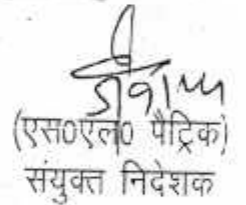 (एस0एल0 पैट्रिक)
संयुक्त निदेशक